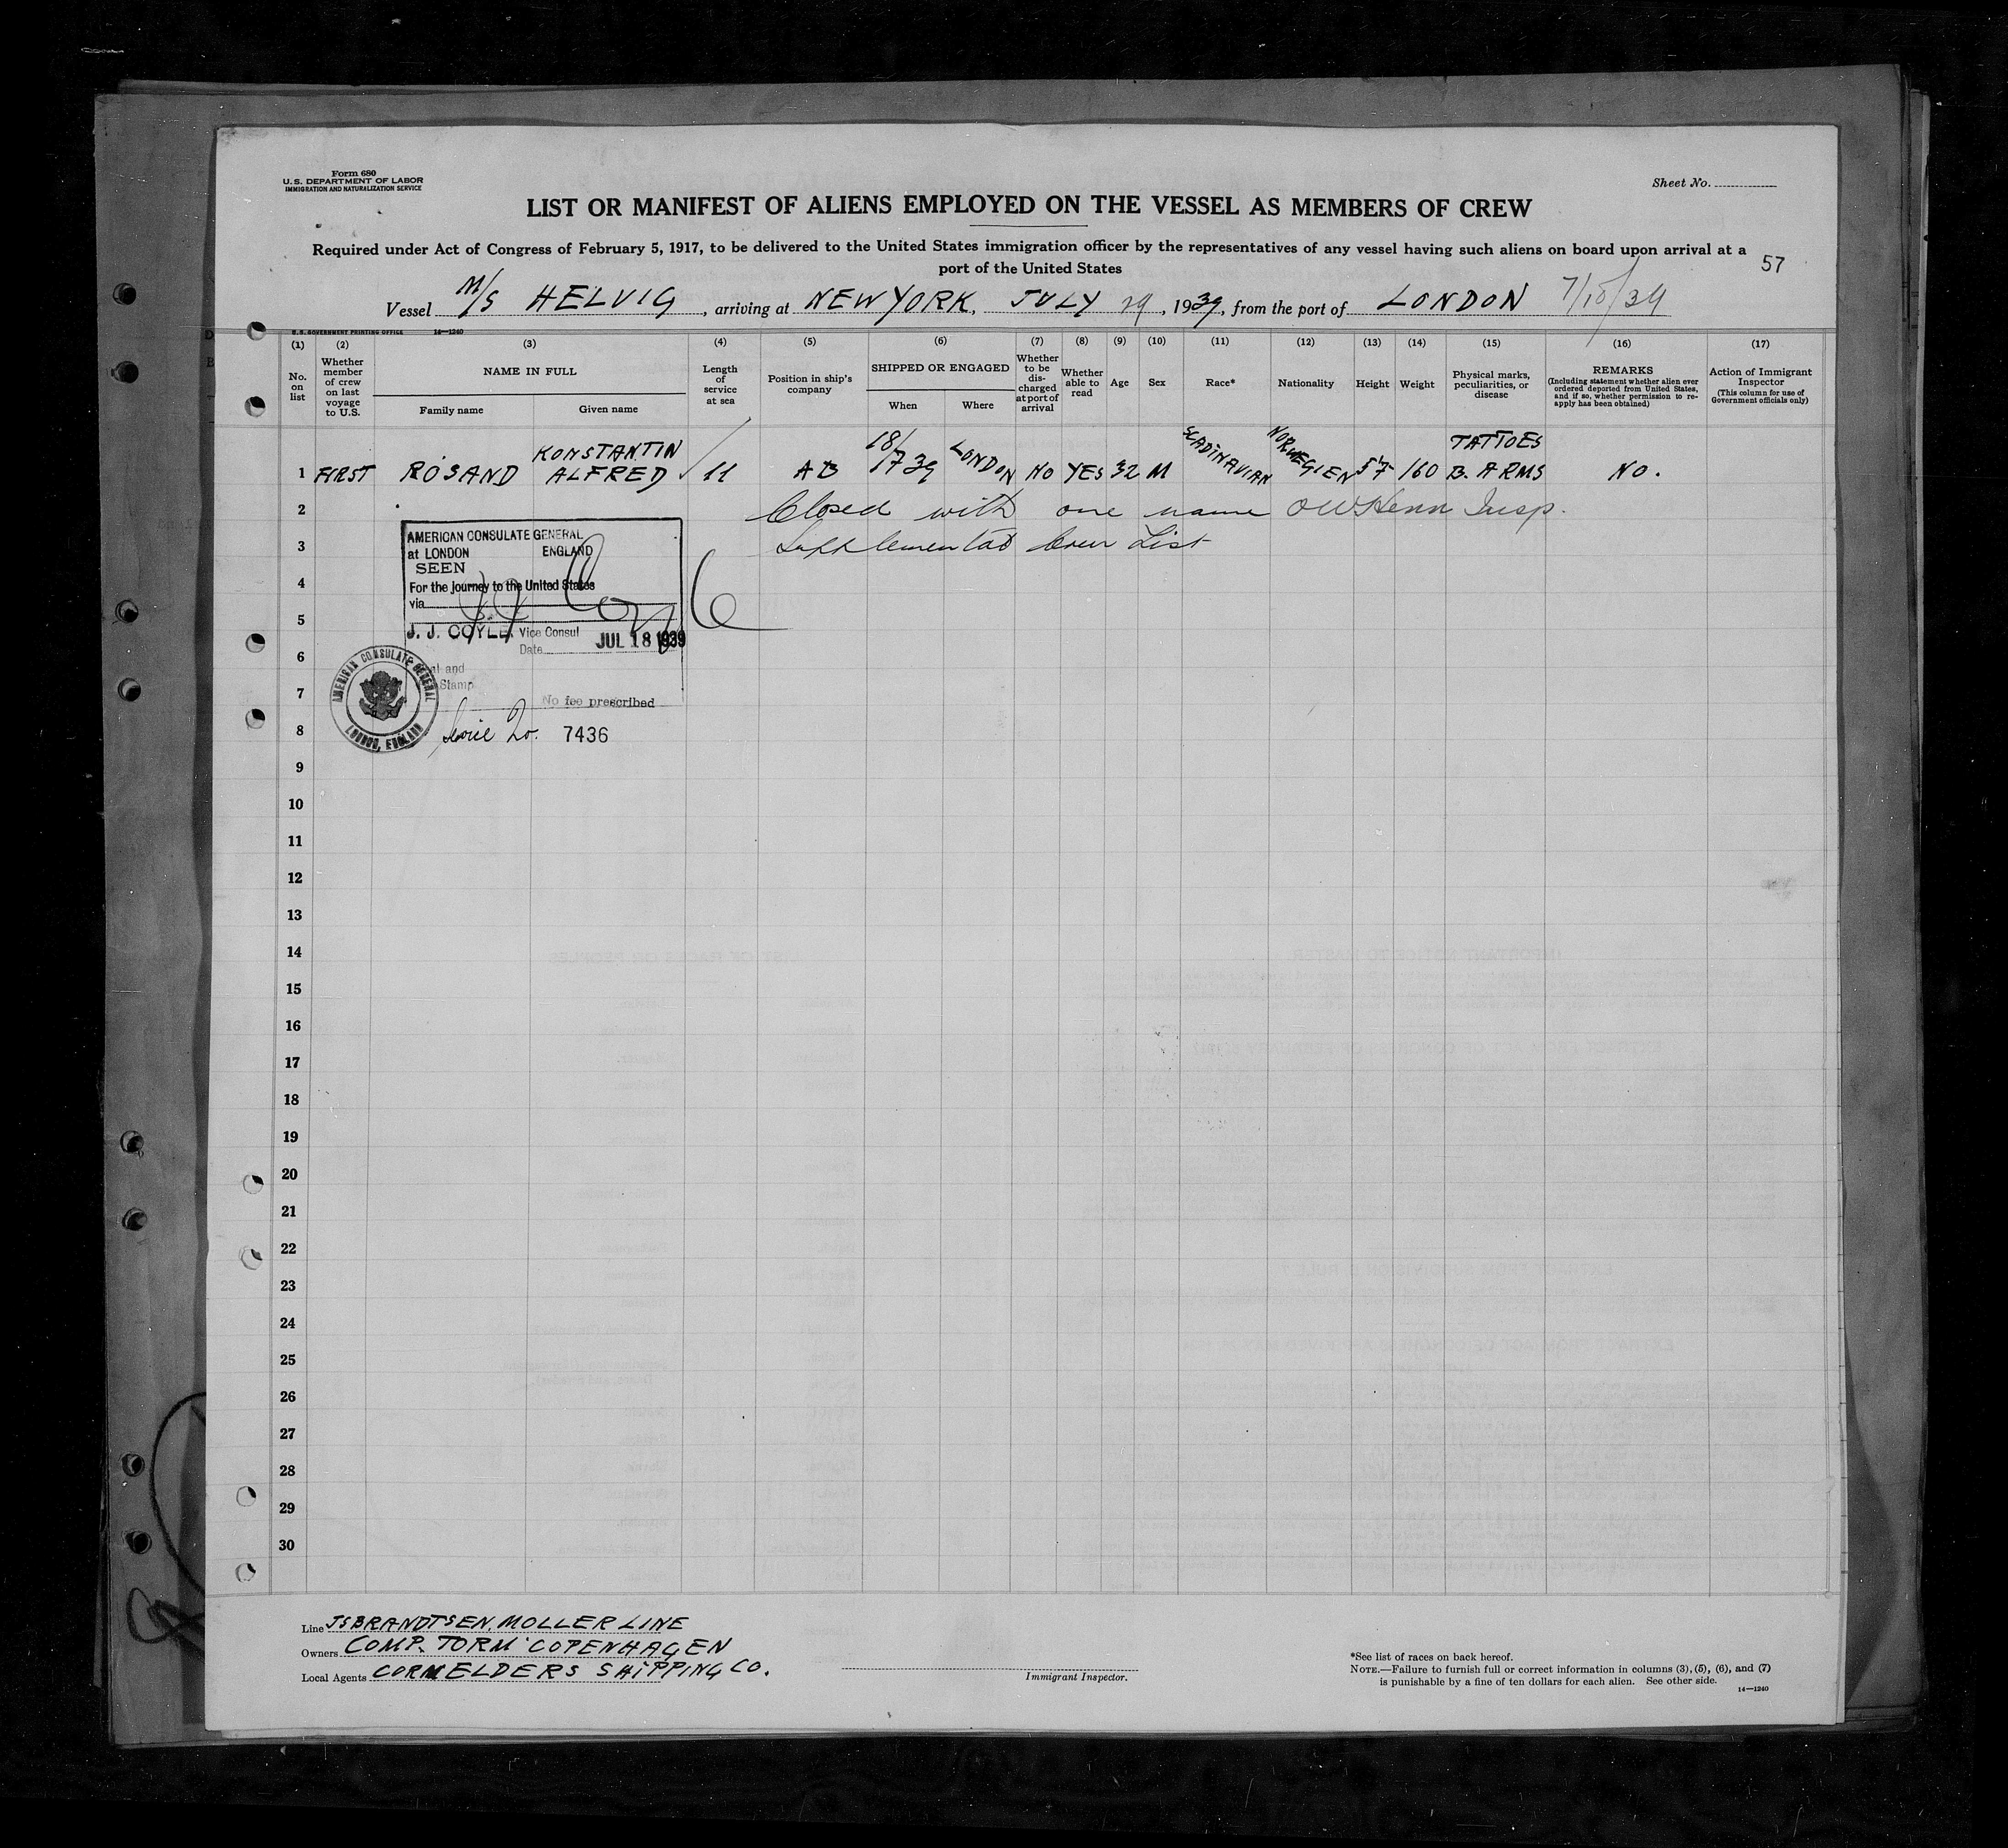 Form 680
U.S. DEPARTMENT OF LABOR
IMMIGRATION AND NATURALIZATION SERVICE
Sheet No.
LIST OR MANIFEST OF ALIENS EMPLOYED ON THE VESSEL AS MEMBERS OF CREW
Required under Act of Congress of February 5, 1917, to be delivered to the United States immigration officer by the representatives of any vessel having such aliens on board upon arrival at a
port of the United States
57
Vessel M/S HELVIG, arriving at NEW YORK, JULY 29, 1939, from the port of LONDON
U.S. GOVERNMENT PRINTING OFFICE 14—1240
(1) (2) (3) (4) (5) (6) (7) (8) (9) (10) (11) (12) (13) (14) (15) (16) (17)
No. on list
Whether member of crew on last voyage to U.S.
NAME IN FULL
Family name
Given name
Length of service at sea
Position in ship's company
SHIPPED OR ENGAGED
When
Where
Whether to be discharged at port of arrival
Whether able to read
Age
Sex
Race*
Nationality
Height
Weight
Physical marks, peculiarities, or disease
REMARKS
(Including statement whether alien ever ordered deported from United States, and if so, whether permission to reapply has been obtained)
Action of Immigrant Inspector
(This column for use of Government officials only)
1 FIRST ROSAND KONSTANTIN ALFRED 11 AB 18/7 39 LONDON NO YES 32 M SCADINAVIAN NORWEGIEN 5'7 160 TATTOES B. ARMS NO.
2 Closed with one name OWHenn Insp.
3 Supplemental Crew List
AMERICAN CONSULATE GENERAL
at LONDON ENGLAND
SEEN
For the journey to the United States
4
via
5
J. J. COYLE, Vice Consul
Date JUL 18 1939
6
AMERICAN CONSULATE GENERAL
LONDON, ENGLAND
Stamp
7
No fee prescribed
8
No. 7436
9
10
11
12
13
14
15
16
17
18
19
20
21
22
23
24
25
26
27
28
29
30
Line ISBRANDTSEN, MOLLER LINE
Owners COMP. TORM COPENHAGEN
Local Agents CORNELDERS SHIPPING CO.
Immigrant Inspector.
*See list of races on back hereof.
NOTE.—Failure to furnish full or correct information in columns (3), (5), (6), and (7)
is punishable by a fine of ten dollars for each alien. See other side.
14—1240